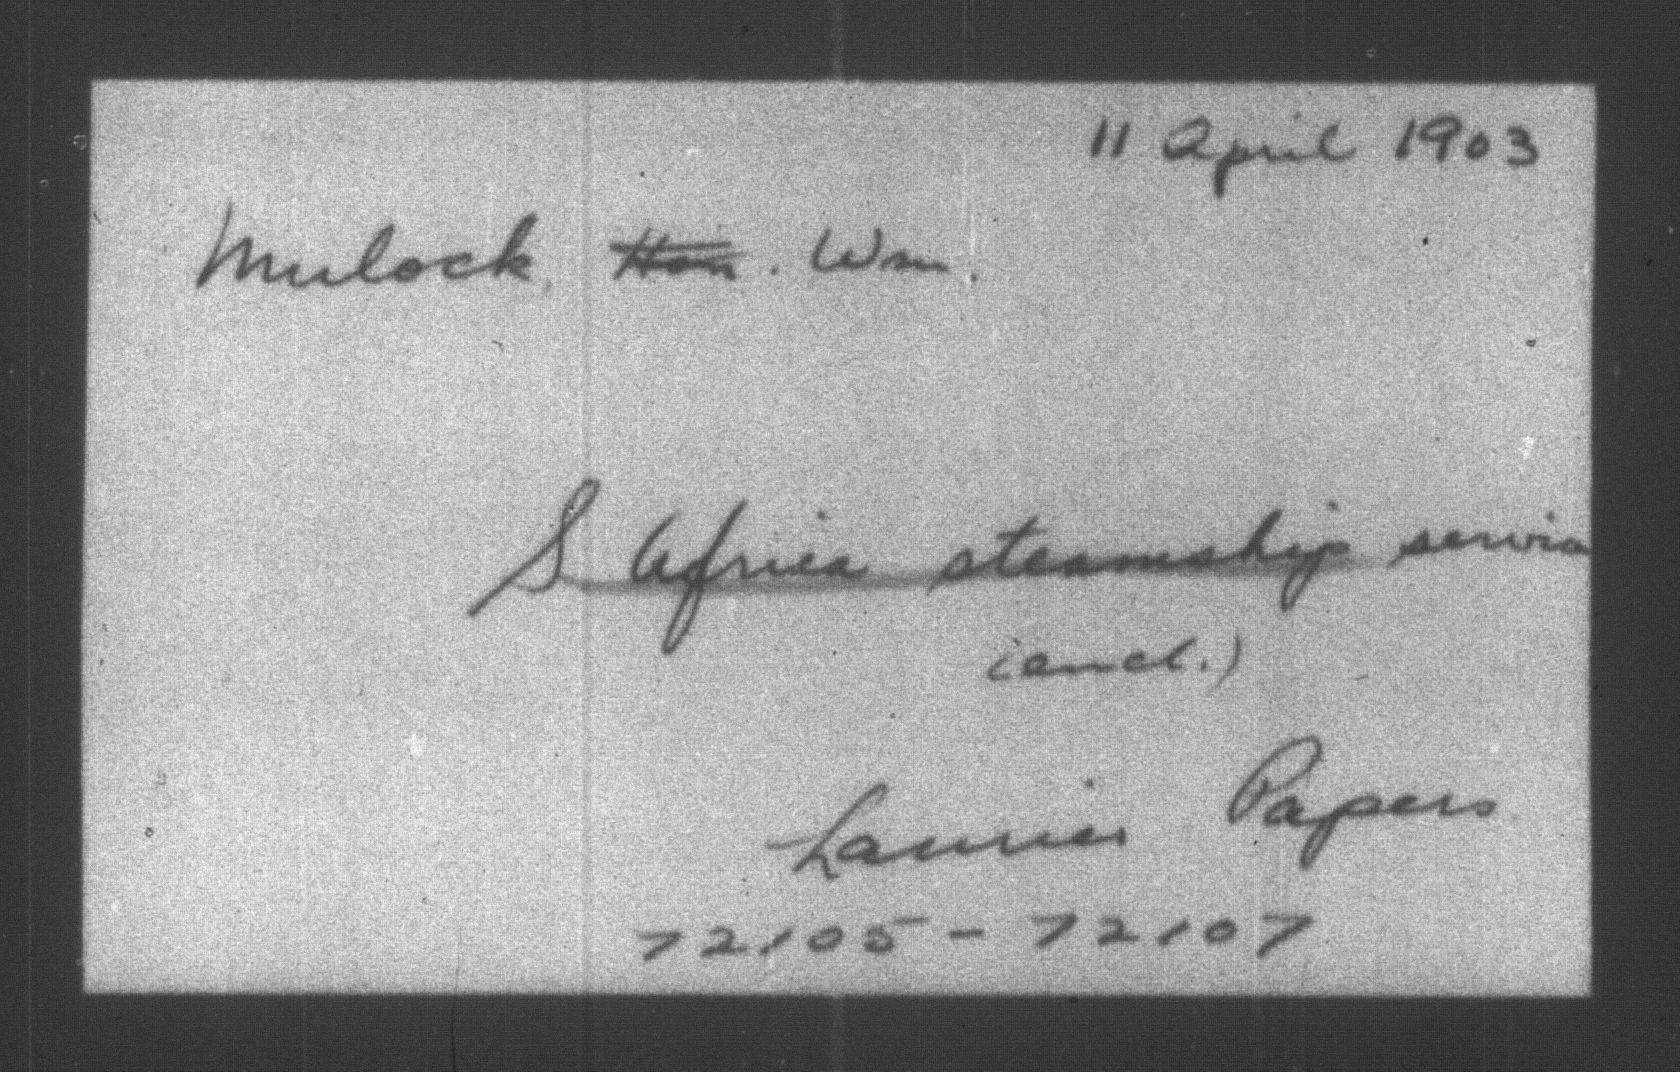 11 April 1903
Mulock, Hon. Wm.
S Africa steamship service
(encl.)
Laurier Papers
72105 - 72107